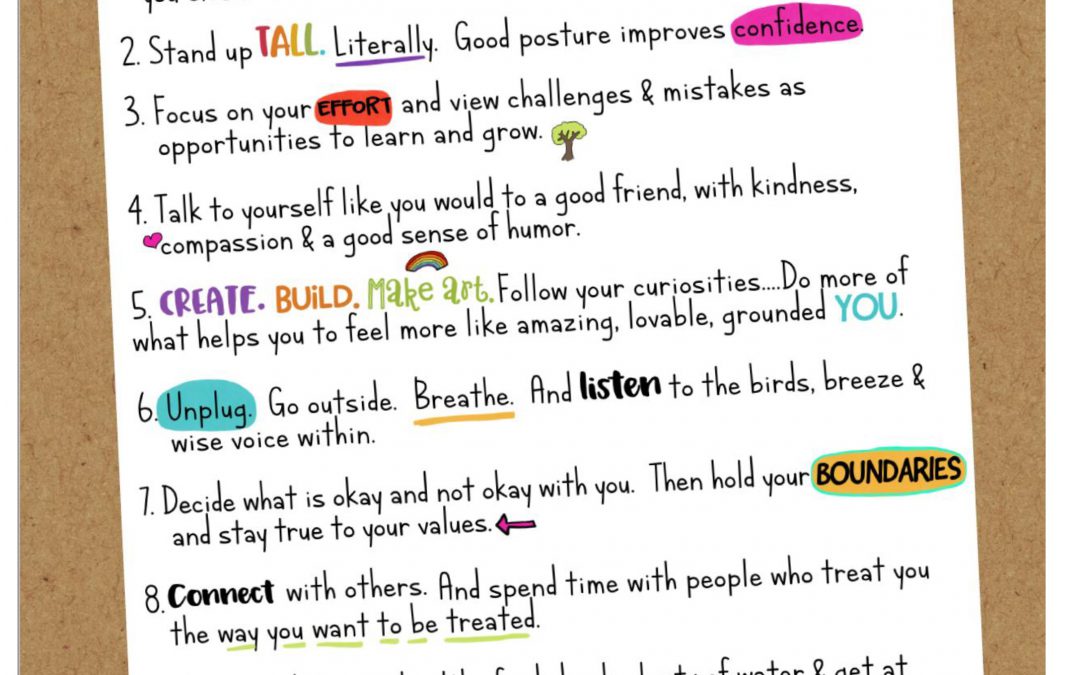 2. Stand up TALL. Literally. Good posture improves confidence.
3. Focus on your EFFORT and view challenges & mistakes as
opportunities to learn and grow.
4. Talk to yourself like you would to a good friend, with kindness,
compassion & a good sense of humor.
5. CREATE. BUILD. Make art. Follow your curiosities....Do more of
what helps you to feel more like amazing, lovable, grounded YOU.
6. Unplug. Go outside. Breathe. And listen to the birds, breeze &
wise voice within.
7. Decide what is okay and not okay with you. Then hold your BOUNDARIES
and stay true to your values.
8. Connect with others. And spend time with people who treat you
the way you want to be treated.
of water & get at